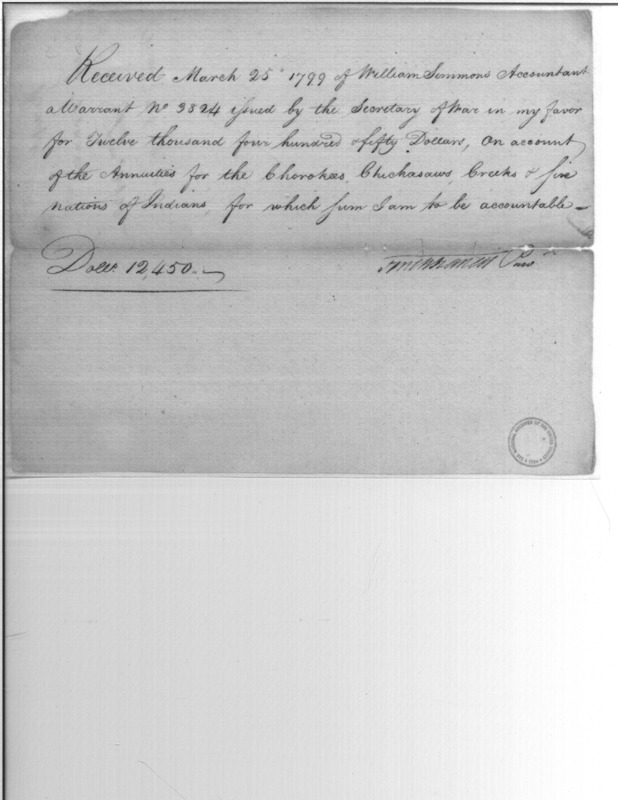 Received March 25th 1799 of William Simmons Accountant
a Warrant No 3324 issued by the Secretary of War in my favor
for Twelve thousand four hundred & fifty Dollars, on account
of the Annuities for the Cherokees, Chickasaws, Creeks & six
nations of Indians, for which sum I am to be accountable
Dolls. 12,450